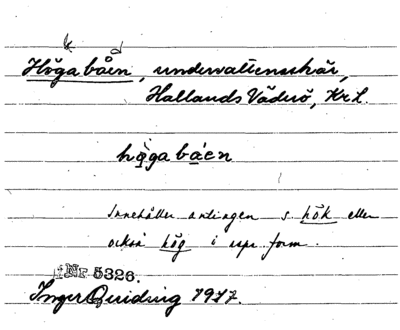 Högabåen, undervattensskär,
Hallands Väderö, Kr l.
högabåen
Innehåller antingen s hök eller
också hög i sup form.
Nr 5326.
Inger Quiding 1917.